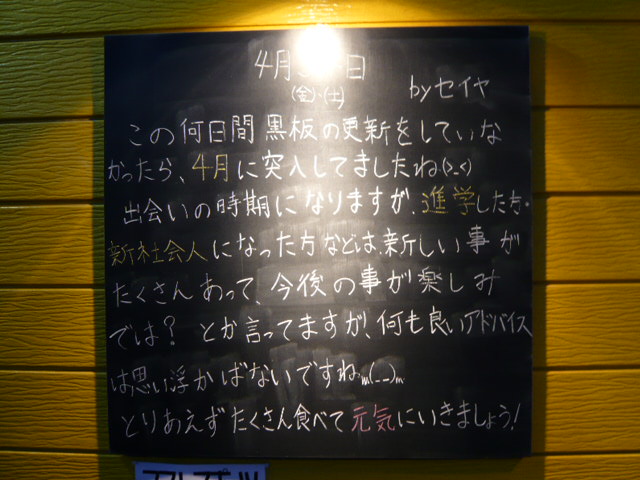 4月 日
(金)、(土)
byセイヤ
この何日間黒板の更新をしていな
かったら、4月に突入してましたね(>_<)
出会いの時期になりますが、進学した方・
新社会人になった方などは、新しい事が
たくさんあって、今後の事が楽しみ
では？とか言ってますが、何も良いアドバイス
は思い浮かばないですねm(__)m
とりあえずたくさん食べて元気にいきましょう!